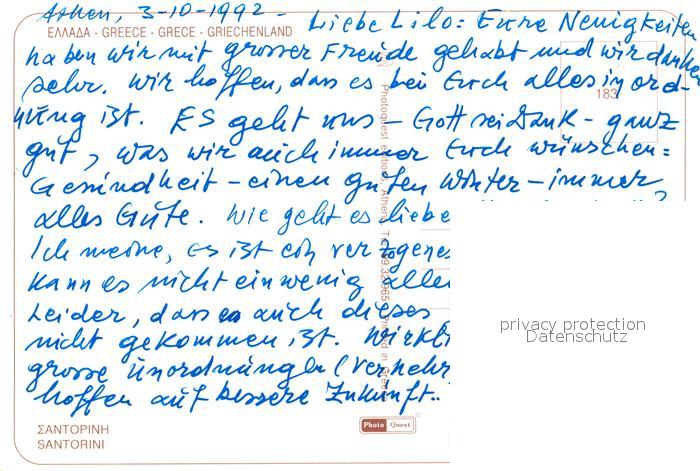 Athen, 3-10-1992-
Liebe Lilo: Eure Neuigkeiten
ΕΛΛΑΔΑ - GREECE - GRECE - GRIECHENLAND
haben wir mit grosser Freude gehabt und wir danken
sehr. Wir hoffen, dass es bei Euch alles in ord-
183
nung ist. ES geht uns - Gott sei Dank - ganz
gut, was wir auch immer Euch wünschen:
Gesundheit - einen guten Winter - immer
alles Gute. Wie geht es liebe
Ich meine, es ist ein verzogenes
Kann es nicht ein wenig alle
Leider, dass auch dieses
nicht gekommen ist. Wirkli
grosse Unordnungen (vermehr
hoffen auf bessere Zukunft..
privacy protection
Datenschutz
ΣΑΝΤΟΡΙΝΗ
SANTORINI
Photo Quest